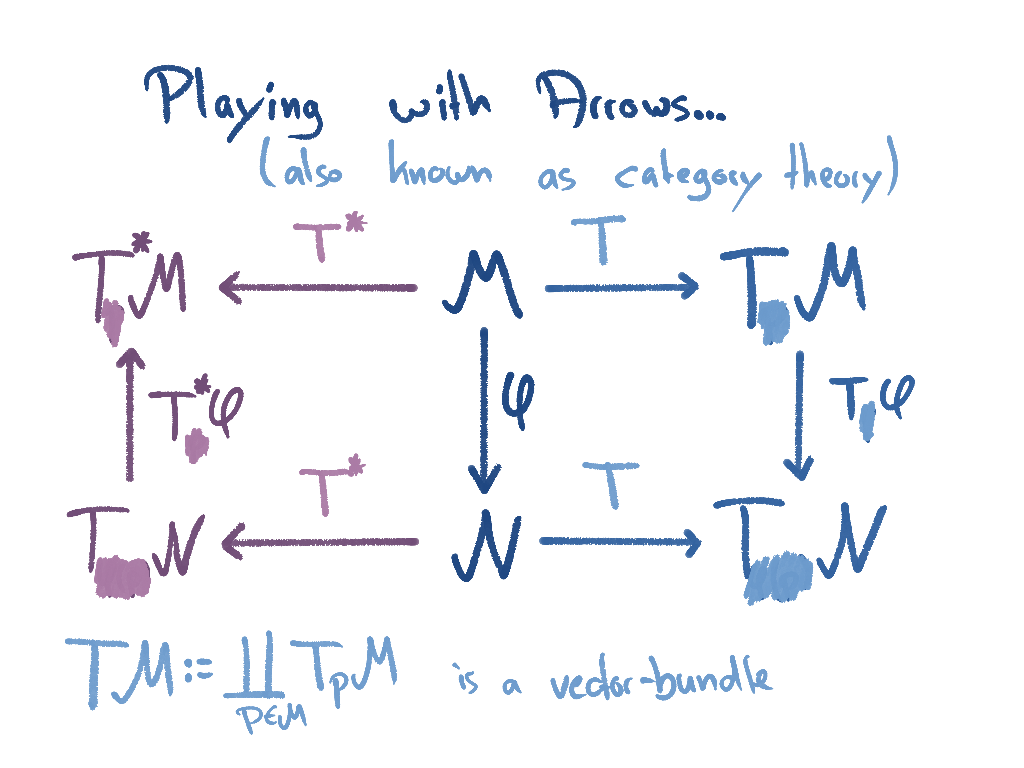 Playing with Arrows...
(also known as category theory)
T*M T* M T TM
T*φ φ Tφ
TN T* N T TN
TM := ∐ TₚM is a vector-bundle
p∈M